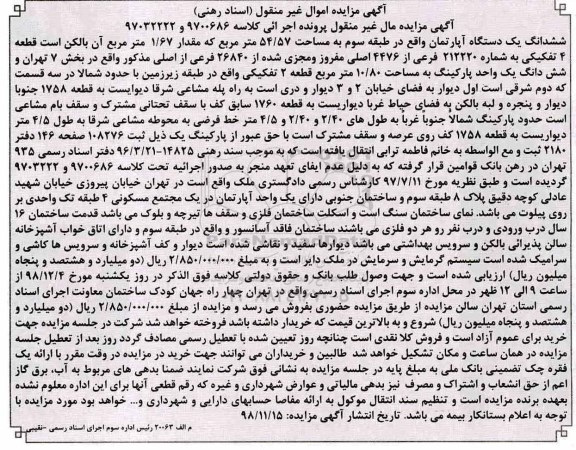 آگهی مزایده اموال غیر منقول (اسناد رهنی)
آگهی مزایده مال غیر منقول پرونده اجر ائی کلاسه ۹۷۰۰۶۸۶ و ۹۷۰۳۲۲۲۲
ششدانگ یک دستگاه آپارتمان واقع در طبقه سوم به مساحت ۵۴/۵۷ متر مربع که مقدار ۱/۶۷ متر مربع آن بالکن است قطعه
۴ تفکیکی به شماره ۲۱۲۲۲۰ فرعی از ۴۴۷۶ اصلی مفروز ومجزی شده از ۲۶۸۴۰ فرعی از اصلی مذکور واقع در بخش ۷ تهران و
شش دانگ یک واحد پارکینگ به مساحت ۱۰/۸۰ متر مربع قطعه ۲ تفکیکی واقع در طبقه زیرزمین با حدود شمالا در سه قسمت
که دوم شرقی است اول دیوار به فضای خیابان ۲ و ۳ دیوار و دری است به راه پله مشاعی شرقا دیوایست به قطعه ۱۷۵۸ جنوبا
دیوار و پنجره و لبه بالکن به فضای حیاط غربا دیواریست به قطعه ۱۷۶۰ سابق کف با سقف تحتانی مشترک و سقف بام مشاعی
است حدود پارکینگ شمالاً جنوباً غرباً به طول های ۲/۴۰ و ۲/۴۰ و ۴/۵ متر خط فرضی به محوطه مشاعی شرقا به طول ۴/۵ متر
دیواریست به قطعه ۱۷۵۸ کف روی عرصه و سقف مشترک است با حق عبور از پارکینگ یک ذیل ثبت ۱۰۸۲۷۶ صفحه ۱۴۶ دفتر
۲۱۸۰ ثبت و مع الواسطه به خانم فاطمه ترابی انتقال یافته است که به موجب سند رهنی ۱۴۸۲۵-۹۶/۳/۲۱ دفتر اسناد رسمی ۹۳۵
تهران در رهن بانک قوامین قرار گرفته که به دلیل عدم ایفای تعهد منجر به صدور اجرائیه تحت کلاسه ۹۷۰۰۶۸۶ و ۹۷۰۳۲۲۲
گردیده است و طبق نظریه مورخ ۹۷/۷/۱۱ کارشناس رسمی دادگستری ملک واقع است در تهران خیابان پیروزی خیابان شهید
عادلی کوچه دقیق پلاک ۸ طبقه سوم و ساختمان جنوبی دارای یک واحد آپارتمان در یک مجتمع مسکونی ۴ طبقه تک واحدی بر
روی پیلوت می باشد. نمای ساختمان سنگ است و اسکلت ساختمان فلزی و سقف ها تیرچه و بلوک می باشد قدمت ساختمان ۱۶
سال درب ورودی و درب نفر رو هر دو فلزی می باشند ساختمان فاقد آسانسور و واقع در طبقه سوم و دارای اتاق خواب آشپزخانه
سالن پذیرائی بالکن و سرویس بهداشتی می باشد دیوارها سفید و نقاشی شده است دیوار و کف آشپزخانه و سرویس ها کاشی و
سرامیک شده است سیستم گرمایش و سرمایش در ملک دایر است و به مبلغ ۲/۸۵۰/۰۰۰/۰۰۰ ریال (دو میلیارد و هشتصد و پنجاه
میلیون ریال) ارزیابی شده است و جهت وصول طلب بانک و حقوق دولتی کلاسه فوق الذکر در روز یکشنبه مورخ ۹۸/۱۲/۴ از
ساعت ۹ الی ۱۲ ظهر در محل اداره سوم اجرای اسناد رسمی واقع در تهران چهار راه جهان کودک ساختمان معاونت اجرای اسناد
رسمی استان تهران سالن مزایده از طریق مزایده حضوری بفروش می رسد و مزایده از مبلغ ۲/۸۵۰/۰۰۰/۰۰۰ ریال (دو میلیارد و
هشتصد و پنجاه میلیون ریال) شروع و به بالاترین قیمت که خریدار داشته باشد فروخته خواهد شد شرکت در جلسه مزایده جهت
خرید برای عموم آزاد است و فروش کلا نقدی است چنانچه روز تعیین شده با تعطیل رسمی مصادف گردد روز بعد از تعطیل جلسه
مزایده در همان ساعت و مکان تشکیل خواهد شد. طالبین و خریداران می توانند جهت خرید در مزایده در وقت مقرر با ارائه یک
فقره چک تضمینی بانک ملی به مبلغ پایه در جلسه مزایده به نشانی فوق شرکت نمایند ضمنا بدهی های مربوط به آب، برق گاز
اعم از حق انشعاب و اشتراک و مصرف نیز بدهی مالیاتی و عوارض شهرداری و غیره که رقم قطعی آنها برای این اداره معلوم نشده
بعهده برنده مزایده است و تنظیم سند انتقال موکول به ارائه مفاصا حسابهای دارایی و شهرداری و... خواهد بود مورد مزایده با
توجه به اعلام بستانکار بیمه می باشد. تاریخ انتشار آگهی مزایده: ۹۸/۱۱/۱۵
م الف ۲۰۰۶۳ رئیس اداره سوم اجرای اسناد رسمی -نقیبی